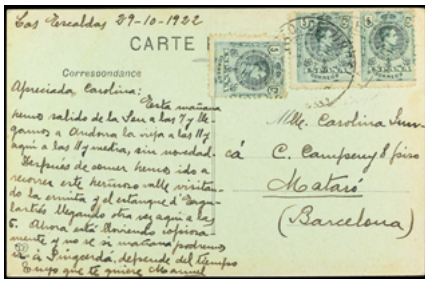 Las Escaldas 29-10-1922
CARTE
Correspondance
Apreciada Carolina:
Esta mañana
hemos salido de la Seu a las 7 y lle
gamos a Andorra la vieja a las 11 y
aqui a las 11 y media, sin novedad.
Despues de comer hemos ido a
recorrer este hermoso valle visitan
do la ermita y el estanque d'Engo
lasters llegando otra vez aqui a las
6. Ahora está lloviendo copiosa
mente y no se si mañana podremos
ir à Puigcerdá, depende del tiempo
Tuyo que te quiere Manuel
Mlle. Carolina
cá C. Campeny 8 piso
Mataró
(Barcelona)